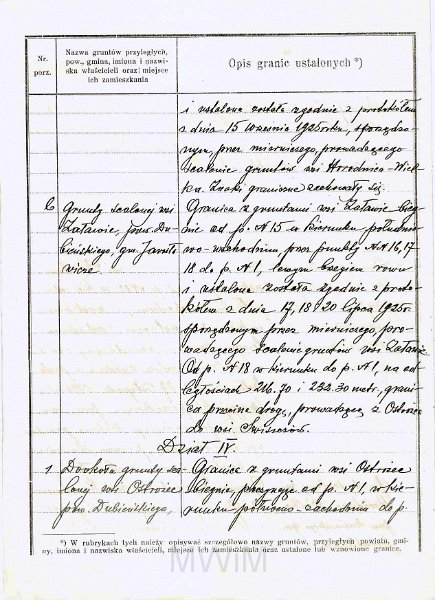 Nr. porz.
Nazwa gruntów przyległych, pow., gmina, imiona i nazwiska właścicieli oraz miejsce ich zamieszkania
Opis granic ustalonych *)
i ustalona została zgodnie z protokółem
z dnia 15 września 1925 roku, sporządzo-
nym przez mierniczego, prowadzącego
scalenie gruntów wsi Horodnica-Wiel-
ka. Znaki graniczne zachowały się.
C Grunty scalonej wsi
Zatawie, pow. Du-
bieńskiego, gm. Jarosła-
wicze
Granica z gruntami wsi Zatawie bieg-
nie od p. № 15 w kierunku południo-
wo-wschodnim, przez punkty №№ 16, 17
18 do p. № 1, lewym brzegiem rowu
i ustalona została zgodnie z proto-
kółem z dnia 17, 18 i 20 lipca 1925 r.
sporządzonym przez mierniczego, pro-
wadzącego scalenie gruntów wsi Zatawie
Od p. № 18 w kierunku do p. № 1, na od-
ległościach 216.70 i 232.30 metr., grani-
ca przecina drogę, prowadzącą z Ostroże
do wsi
Dział IV.
1. Dookoła grunty sca-
lonej wsi Ostrożec
pow. Dubieńskiego,
Granica z gruntami wsi Ostrożec
biegnie, poczynając od p. № 1, w kie-
runku północno-zachodnim do p.
*) W rubrykach tych należy opisywać szczegółowo nazwy gruntów, przyległych powiatu, gmi-
ny, imiona i nazwiska właścicieli, miejsce ich zamieszkania oraz ustalone lub wznowione granice.
MWIM